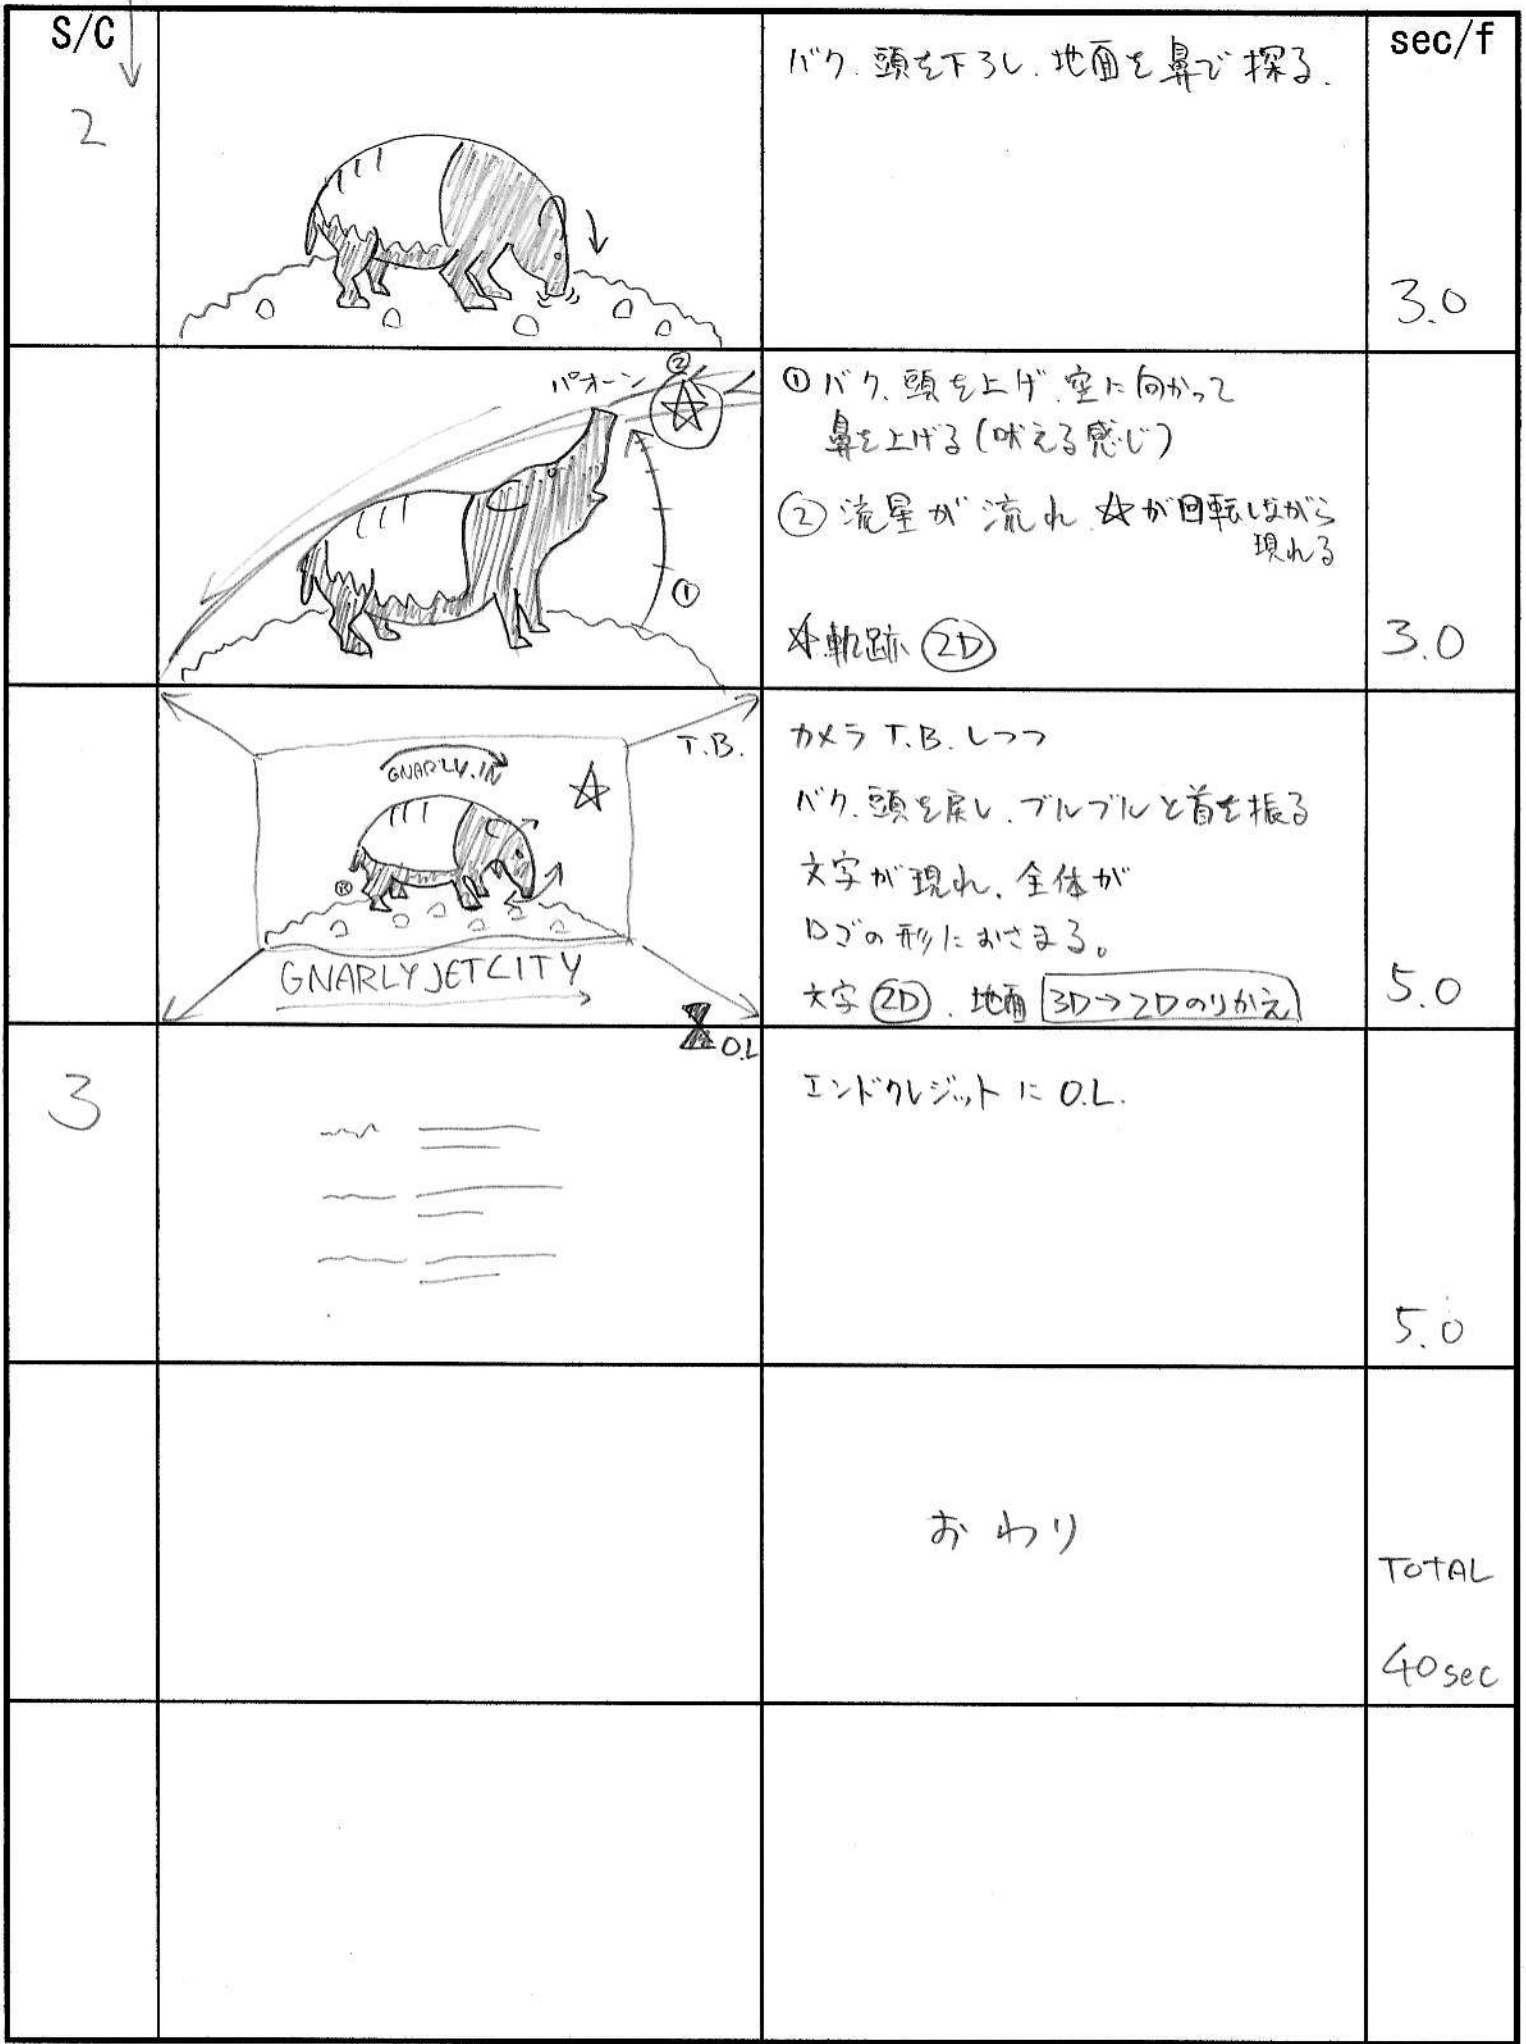 S/C
sec/f
2
バク、頭を下ろし、地面を鼻で探る。
3.0
パオーン
②
①
①バク、頭を上げ、空に向かって
鼻を上げる(吠える感じ)
②流星が流れ、☆が回転しながら
現れる
☆軌跡 2D
3.0
T.B.
GNARLY.IN
®
GNARLYJETCITY
カメラ T.B. しつつ
バク、頭を戻し、ブルブルと首を振る
文字が現れ、全体が
ロゴの形におさまる。
文字 2D、地面 3D→2Dのりかえ
5.0
3
O.L
エンドクレジットに O.L.
5.0
おわり
TOTAL
40sec